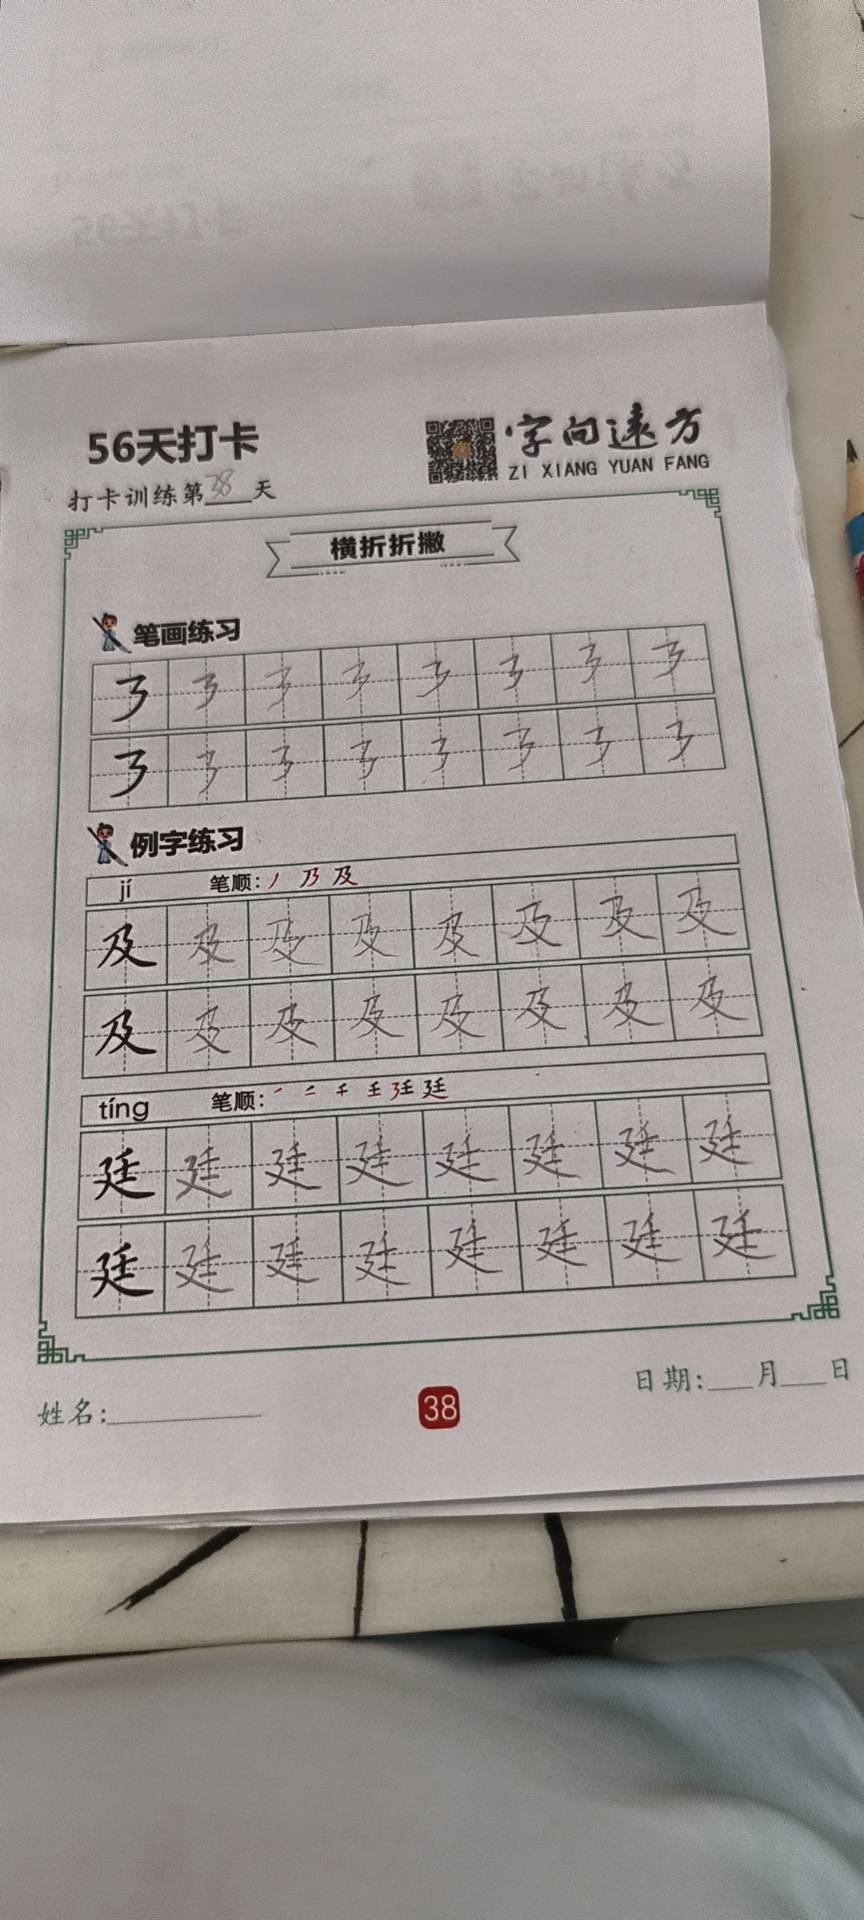 56天打卡
字向远方
ZI XIANG YUAN FANG
打卡训练第38天
横折折撇
笔画练习
㇋ ㇋ ㇋ ㇋ ㇋ ㇋ ㇋ ㇋
㇋ ㇋ ㇋ ㇋ ㇋ ㇋ ㇋ ㇋
例字练习
jí 笔顺: 丿 乃 及
及 及 及 及 及 及 及 及
及 及 及 及 及 及 及 及
tíng 笔顺: ㇒ 二 千 壬 廷 廷
廷 廷 廷 廷 廷 廷 廷 廷
廷 廷 廷 廷 廷 廷 廷 廷
姓名:
38
日期: 月 日